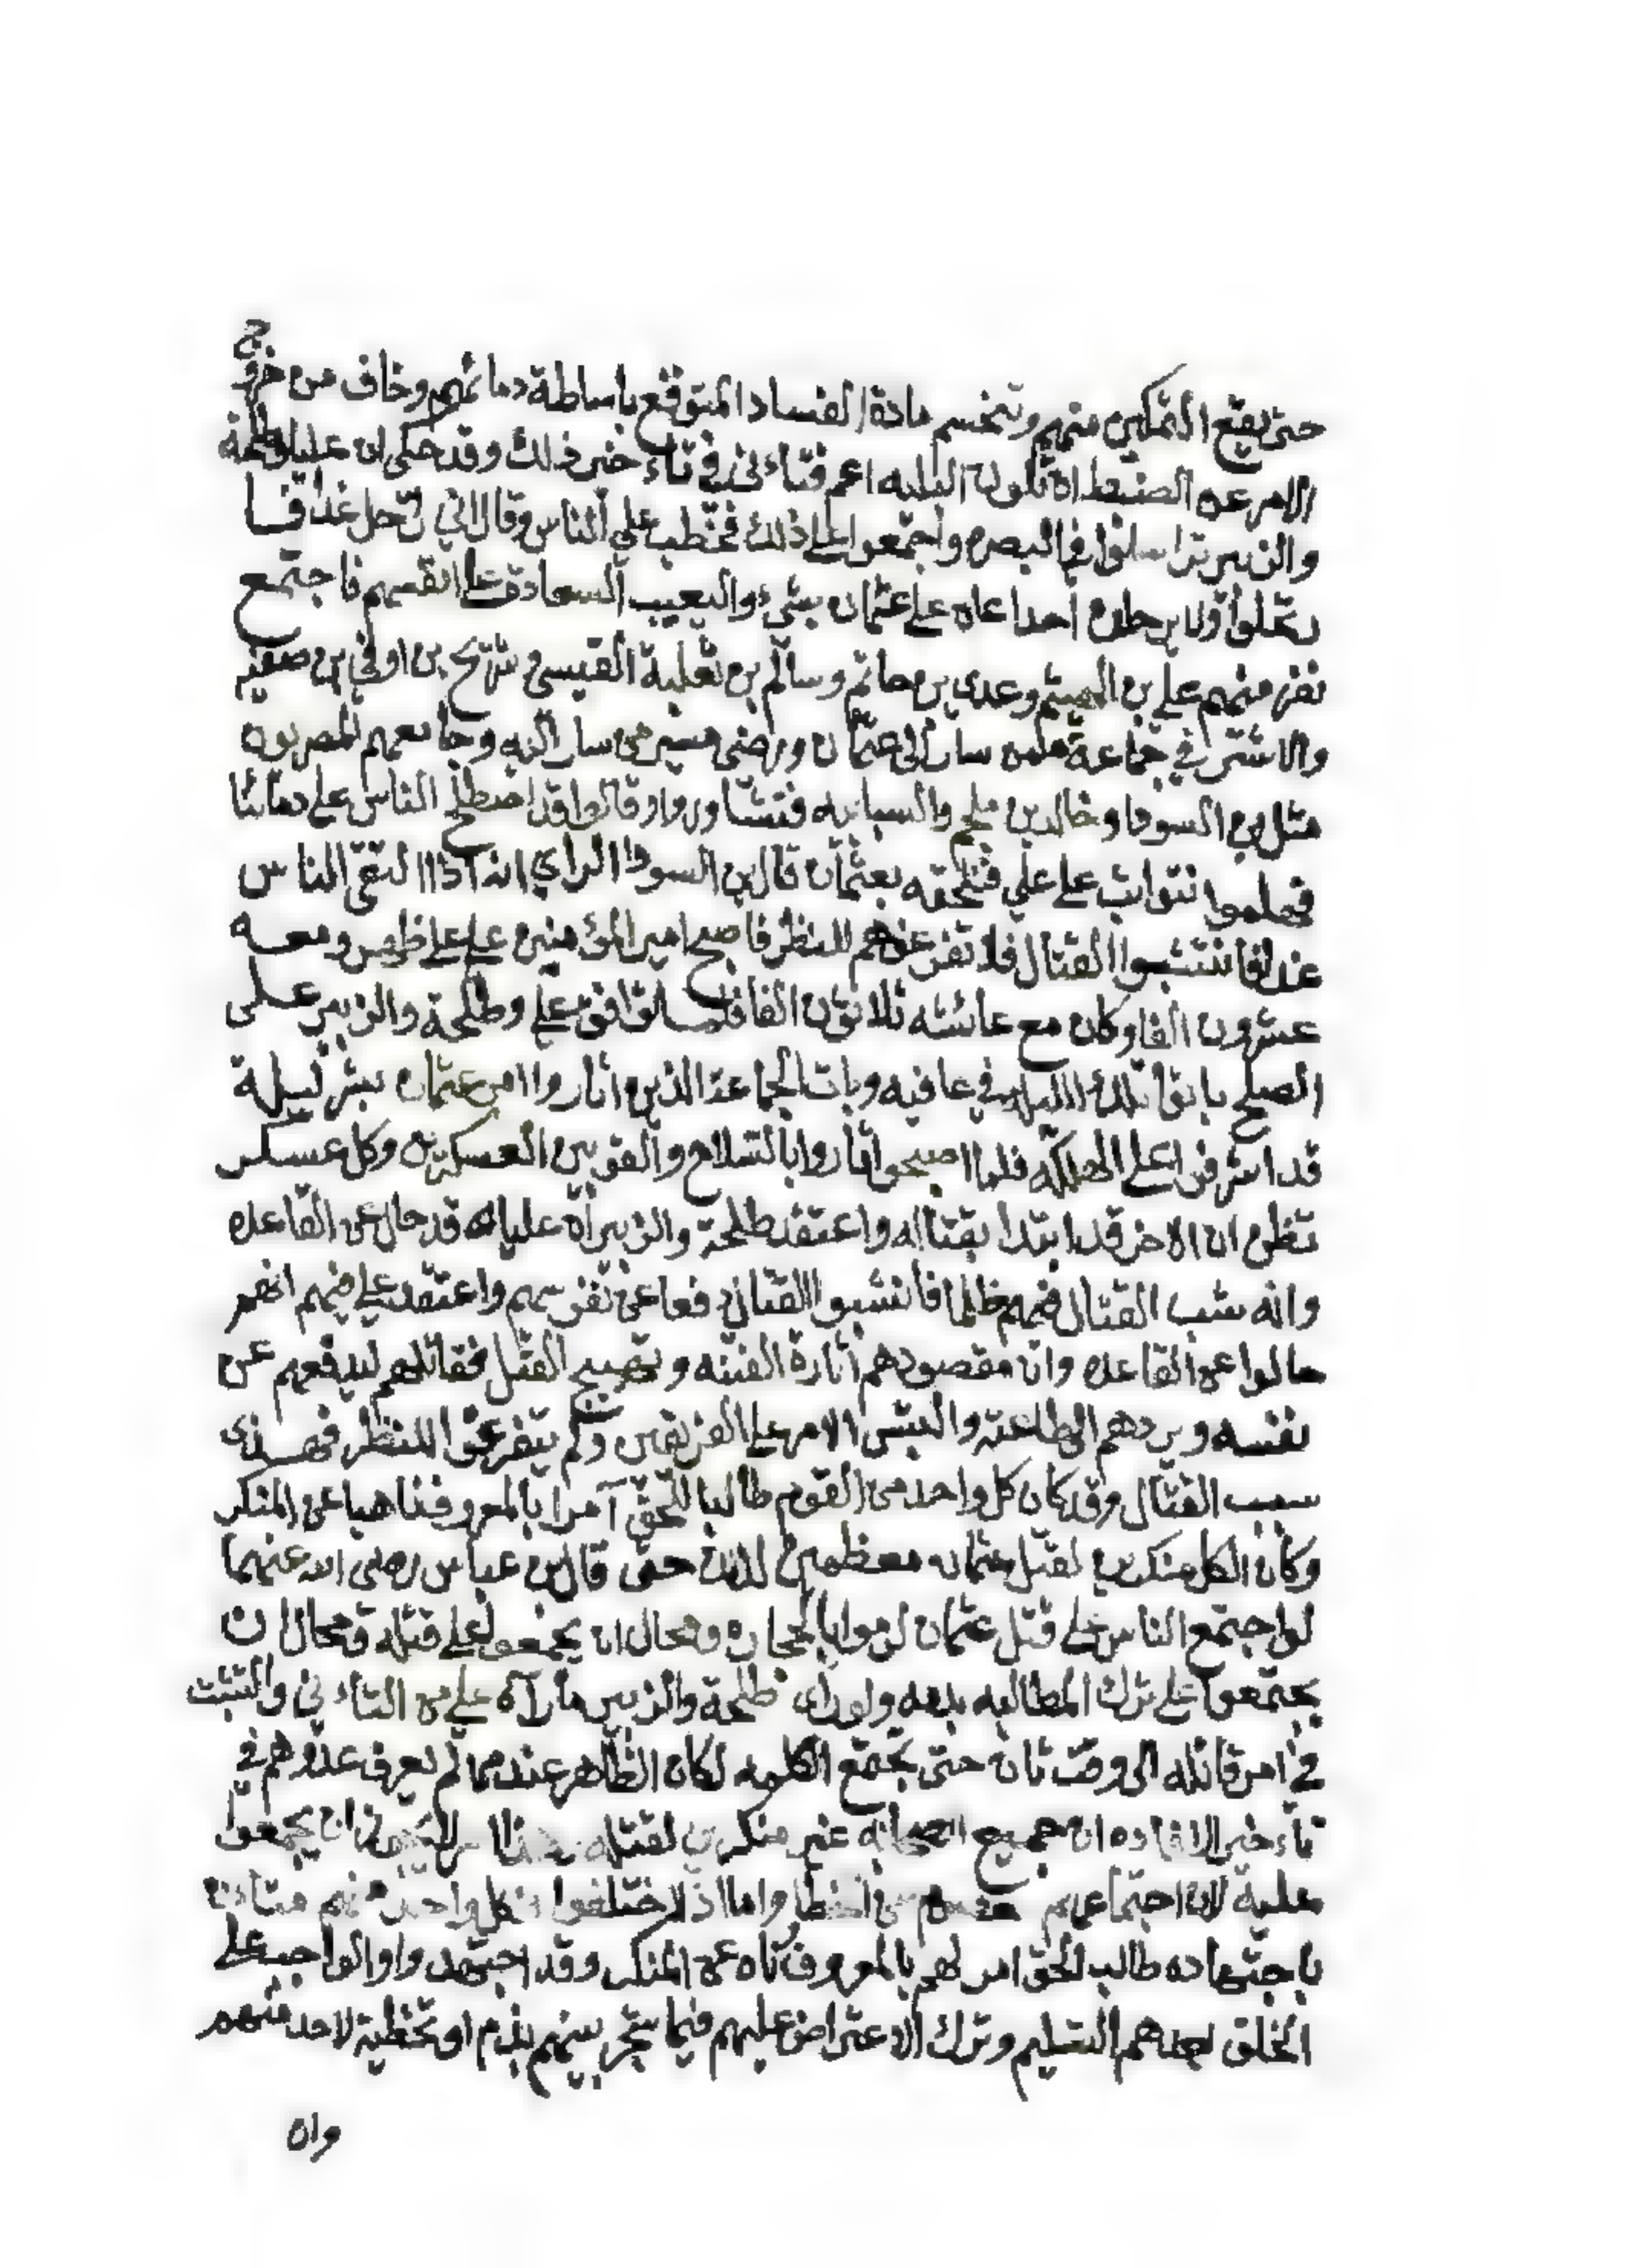 حتى يقع التمكين منهم وتنحسم مادة الفساد المتوقع باساطة دمائهم وخاف من خروج
الامر عن الضبط ان تكون البليه اعم فتاءنى في تاءخير ذلك وقد حكى ان عليا وطلحة
والزبير تراسلوا في البصره واجتمعوا على ذلك فخطب علي الناس وقال اني راحل غدا فا
رتحلوا ولا يرحلن احدا عان على عثمان بشيء السعادة على انفسهم فاجتمع
نفر منهم علي بن الهيثم وعدى بن حاتم وسالم بن ثعلبة القيسي وشريح بن اوفي بن ضعيم
والاشتر في جماعة ممن سار الى عثمان ورضى مسير من سار اليه وجا معهم المصريون
مثل بن السودا وخالد بن ملجم والسبايه فتشاوروا وقالوا قد اصطلح الناس على دمائنا
فهلموا نتواثب على علي فنلحقه بعثمان قال بن السودا الراي انه اذا التقى الناس
غدا فانتشبوا القتال فلا تفرغوهم للنظر فاصبح امير المؤمنين علي على ظهر ومعه
عشرون الفا وكان مع عائشه ثلاثون الفا فلما توافق علي وطلحة والزبير على
الصلح باتوا تلك الليله في عافيه وبات الجماعة الذين اثاروا امر عثمان بشر ليلة
قد اشرفوا على الهلكه فلما اصبحوا ثاروا بالسلاح والقو بين العسكرين وكل عسكر
تظن ان الاخر قد ابتدا بقتاله واعتقد طلحة والزبير ان عليا قد حال عن القاعده
وانه شب القتال فيهم ظلما فانشبوا القتال دفعا عن نفوسهم واعتقد علي فيهم انهم
حالوا عن القاعده وان مقصودهم اثارة الفتنه وتهييج القتل فقاتلهم ليدفعهم عن
نفسه ويردهم الى الطاعة والتبس الامر على الفريقين ولم يتفرغوا للنظر فهذى
سبب القتال وقد كان كل واحد من القوم طالبا للحق آمرا بالمعروف ناهيا عن المنكر
وكان الكل منكرين لقتل عثمان معظمين لذلك حتى قال بن عباس رضى الله عنهما
لو اجتمع الناس على قتل عثمان لرموا بالحجاره ومحال ان يجمعوا على قتله ومحال ان
يجتمعوا على ترك المطالبه بدمه ولو راى طلحة والزبير ما رآه علي من التاءني والتثبت
في امر قاتله الى وقت ثان حتى تجتمع الكلمه لكان الظاهر عندهما لم يعرف عذرهم في
تاءخير الاقاده ان جميع الصحابه غير منكرين لقتله وهذا لا يجوز ان يجمعوا
عليه لان اجتماعهم معصوم من الخطا واما اذ لا ختلفوا فكل واحد منهم متاءول
باجتهاده طالب للحق امر لهم بالمعروف ناه عن المنكر وقد اجتهد والواجب على
الخلق بعدهم التسليم وترك الاعتراض عليهم فيما شجر بينهم بذم او تخطية لاحد منهم
وان